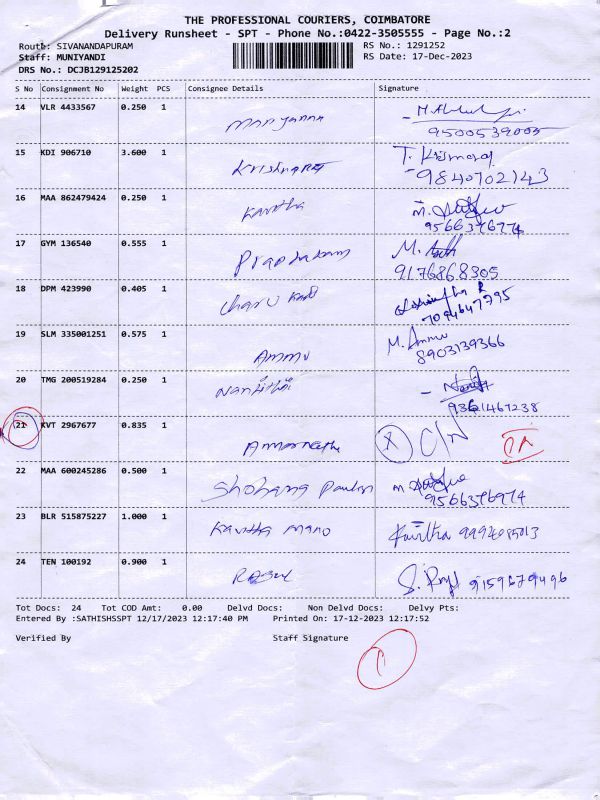 THE PROFESSIONAL COURIERS, COIMBATORE
Delivery Runsheet - SPT - Phone No.:0422-3505555 - Page No.:2
Route: SIVANANDAPURAM RS No.: 1291252
Staff: MUNIYANDI RS Date: 17-Dec-2023
DRS No.: DCJB129125202
S No Consignment No Weight PCS Consignee Details Signature
14 VLR 4433567 0.250 1
9500539005
15 KDI 906710 3.600 1 T.
9840702143
16 MAA 862479424 0.250 1 Kavitha M.
9566376774
17 GYM 136540 0.555 1 Prabhakara M.
9176868305
18 DPM 423990 0.405 1 Charu
7094647795
19 SLM 335001251 0.575 1 Ammu M. Ammu
8903139366
20 TMG 200519284 0.250 1
9361467238
21 KVT 2967677 0.835 1 X C/N
22 MAA 600245286 0.500 1 M
9566376974
23 BLR 515875227 1.000 1 Kavitha Mano Kavitha 9994085013
24 TEN 100192 0.900 1 S. 9159679496
Tot Docs: 24 Tot COD Amt: 0.00 Delvd Docs: Non Delvd Docs: Delvy Pts:
Entered By :SATHISHSSPT 12/17/2023 12:17:40 PM Printed On: 17-12-2023 12:17:52
Verified By Staff Signature
1